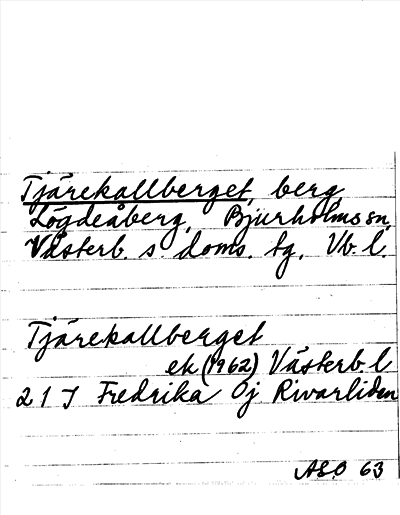 Tjärekallberget, berg,
Lögdeåberg, Bjurholms sn,
Västerb. s. doms. tg, Vb. l.
Tjärekallberget
ek (1962) Västerb. l
21J Fredrika Öj Rivarliden
ASO 63